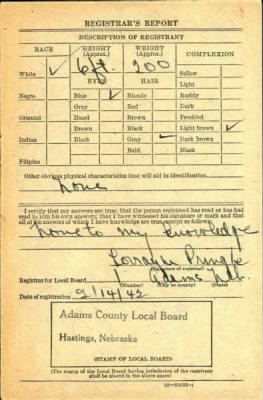 REGISTRAR'S REPORT
DESCRIPTION OF REGISTRANT
RACE HEIGHT (Approx.) WEIGHT (Approx.) COMPLEXION
6 ft. 200
White ✓ Sallow
EYES HAIR Light
Negro Blue ✓ Blonde Ruddy
Gray Red Dark
Oriental Hazel Brown Freckled
Brown Black Light brown ✓
Indian Black Gray Dark brown
Bald Black
Filipino
Other obvious physical characteristics that will aid in identification
none
I certify that my answers are true; that the person registered has read or has had
read to him his own answers; that I have witnessed his signature or mark and that
all of his answers of which I have knowledge are true, except as follows:
none to my knowledge
Lorrayne Pringle
(Signature of registrar)
Registrar for Local Board 1 Adams Neb.
(Number) (City or county) (State)
Date of registration 2/14/42
Adams County Local Board
Hastings, Nebraska
(STAMP OF LOCAL BOARD)
(The stamp of the Local Board having jurisdiction of the registrant
shall be placed in the above space)